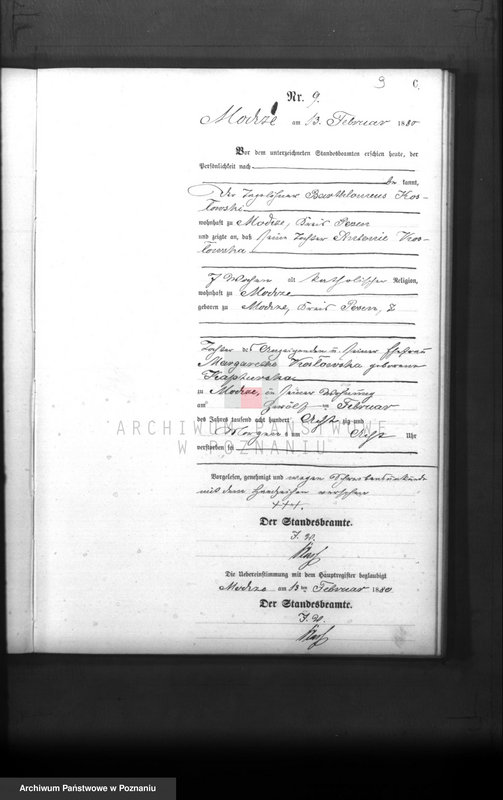 9 C.
Nr. 9.
Modrze am 13. Februar 1880
Vor dem unterzeichneten Standesbeamten erschien heute, der
Persönlichkeit nach
be kannt,
der Tagelöhner Bartholomeus Kos-
lowski
wohnhaft zu Modrze, Kreis Posen
und zeigte an, daß seine Tochter Antonie Kos-
lowska
7 Wochen alt katholischer Religion,
wohnhaft zu Modrze
geboren zu Modrze, Kreis Posen,
Tochter des Anzeigenden u. seiner Ehefrau
Margaretha Koslowska geborene
Kapturska
zu Modrze, in seiner Wohnung
am zwölf ten Februar
des Jahres tausend acht hundert acht zig und
Morgens um acht Uhr
verstorben sei
Vorgelesen, genehmigt und wegen Schreibensunkunde
mit dem Handzeichen versehen
+++.
Der Standesbeamte.
Die Uebereinstimmung mit dem Hauptregister beglaubigt
Modrze am 13 ten Februar 1880
Der Standesbeamte.
ARCHIWUM PAŃSTWOWE
W POZNANIU
Archiwum Państwowe w Poznaniu